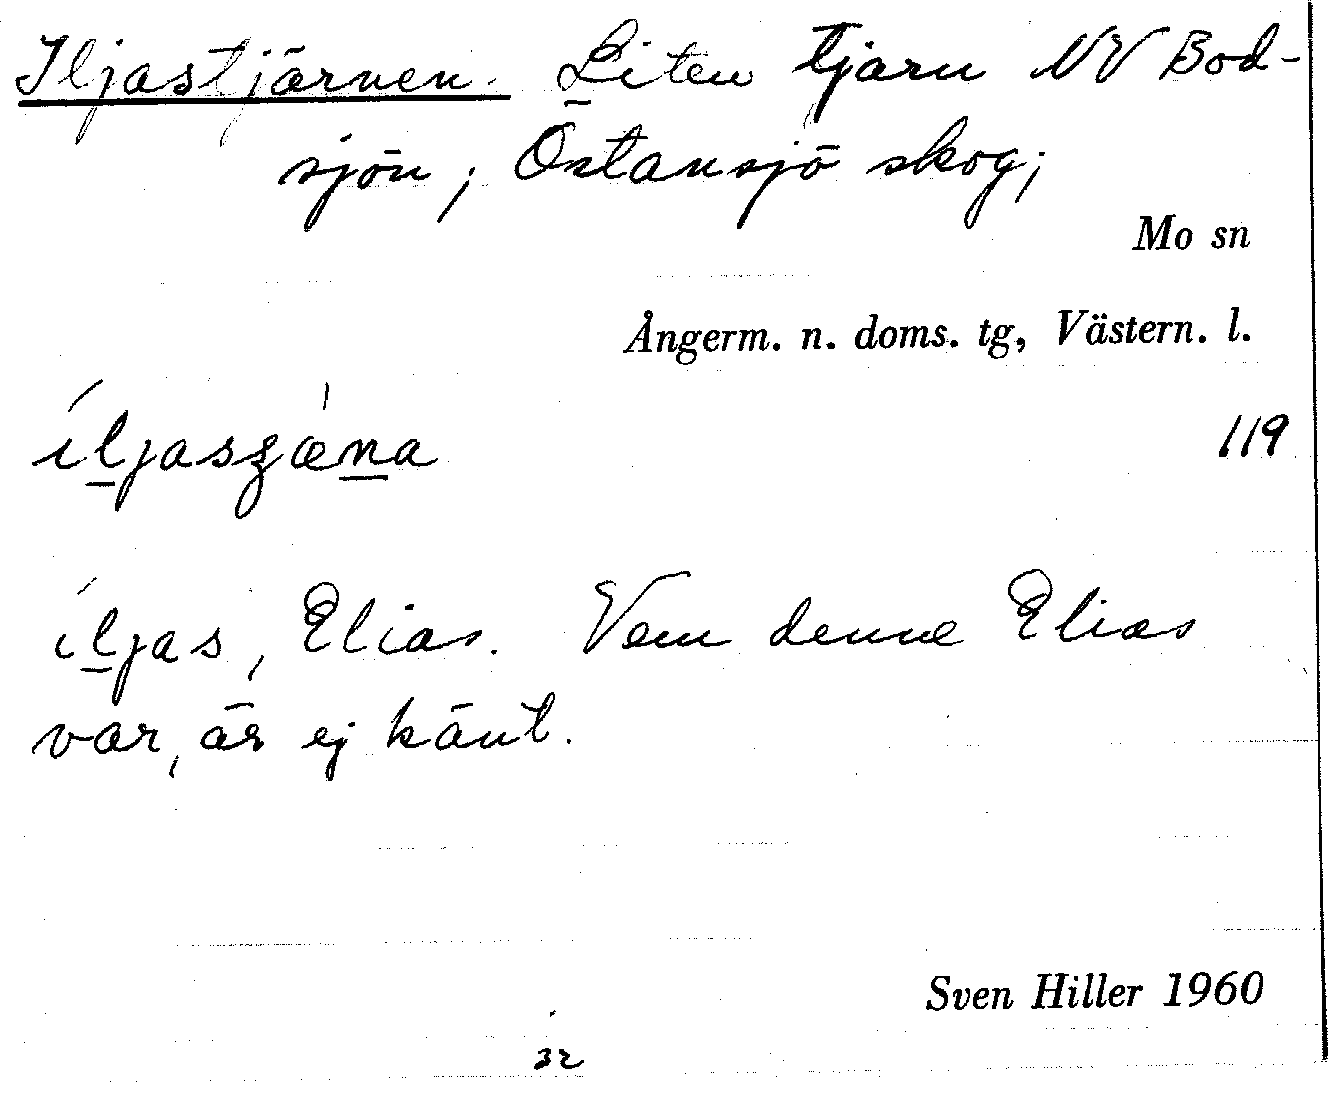 Iljastjärnen. Liten tjärn NV Bod-
sjön; Östansjö skog;
Mo sn
Ångerm. n. doms. tg, Västern. l.
íḻjasʒǽṉa
119
íḻjas, Elias. Vem denne Elias
var, är ej känt.
Sven Hiller 1960
32